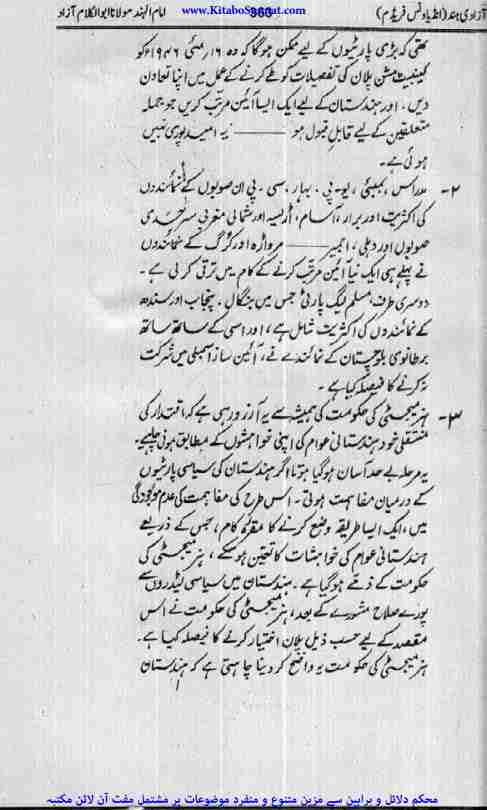 آزادی ہند (انڈیا ونس فریڈم)
363
www.KitaboSunnat.com
امام الہند مولانا ابوالکلام آزاد
تھی کہ بڑی پارٹیوں کے لیے ممکن ہوگا کہ وہ ۱۶ مئی ۱۹۴۶ء کو
کیبنیٹ مشن پلان کی تفصیلات کو طے کرنے کے عمل میں اپنا تعاون
دیں۔ اور ہندستان کے لیے ایک ایسا آئین مرتب کریں جو جملہ
متعلقین کے لیے قابل قبول ہو ——— یہ امید پوری نہیں
ہوئی ہے۔
۲- مدراس، بمبئی، یو۔پی۔ بہار، سی۔پی ان صوبوں کے نمائندوں
کی اکثریت اور برار، آسام، اڑیسہ اور شمالی مغربی سرحدی
صوبوں اور دہلی، اجمیر ——— مرواڑہ اور کورگ کے نمائندوں
نے پہلے ہی ایک نیا آئین مرتب کرنے کے کام میں ترقی کر لی ہے۔
دوسری طرف مسلم لیگ پارٹی جس میں بنگال۔ پنجاب اور سندھ
کے نمائندوں کی اکثریت شامل ہے، اور اسی کے ساتھ ساتھ
برطانوی بلوچستان کے نمائندے نے، آئین ساز اسمبلی میں شرکت
نہ کرنے کا فیصلہ کیا ہے۔
۳- ہز میجسٹی کی حکومت کی ہمیشہ سے یہ آرزو رہی ہے کہ اقتدار کی
منتقلی خود ہندستانی عوام کی اپنی خواہشوں کے مطابق ہونی چاہیے۔
یہ مرحلہ بے حد آسان ہوگیا ہوتا اگر ہندستان کی سیاسی پارٹیوں
کے درمیان مفاہمت ہوتی۔ اس طرح کی مفاہمت کی عدم موجودگی
میں، ایک ایسا طریقہ وضع کرنے کا مقررہ کام، جس کے ذریعے
ہندستانی عوام کی خواہشات کا تعین ہو سکے، ہز میجسٹی کی
حکومت کے ذمے ہوگیا ہے۔ ہندستان میں سیاسی لیڈروں سے
پورے صلاح مشورے کے بعد، ہز میجسٹی کی حکومت نے اس
مقصد کے لیے حسب ذیل پلان اختیار کرنے کا فیصلہ کیا ہے۔
ہز میجسٹی کی حکومت یہ واضح کر دینا چاہتی ہے کہ ہندستان
محکم دلائل و براہین سے مزین متنوع و منفرد موضوعات پر مشتمل مفت آن لائن مکتبہ